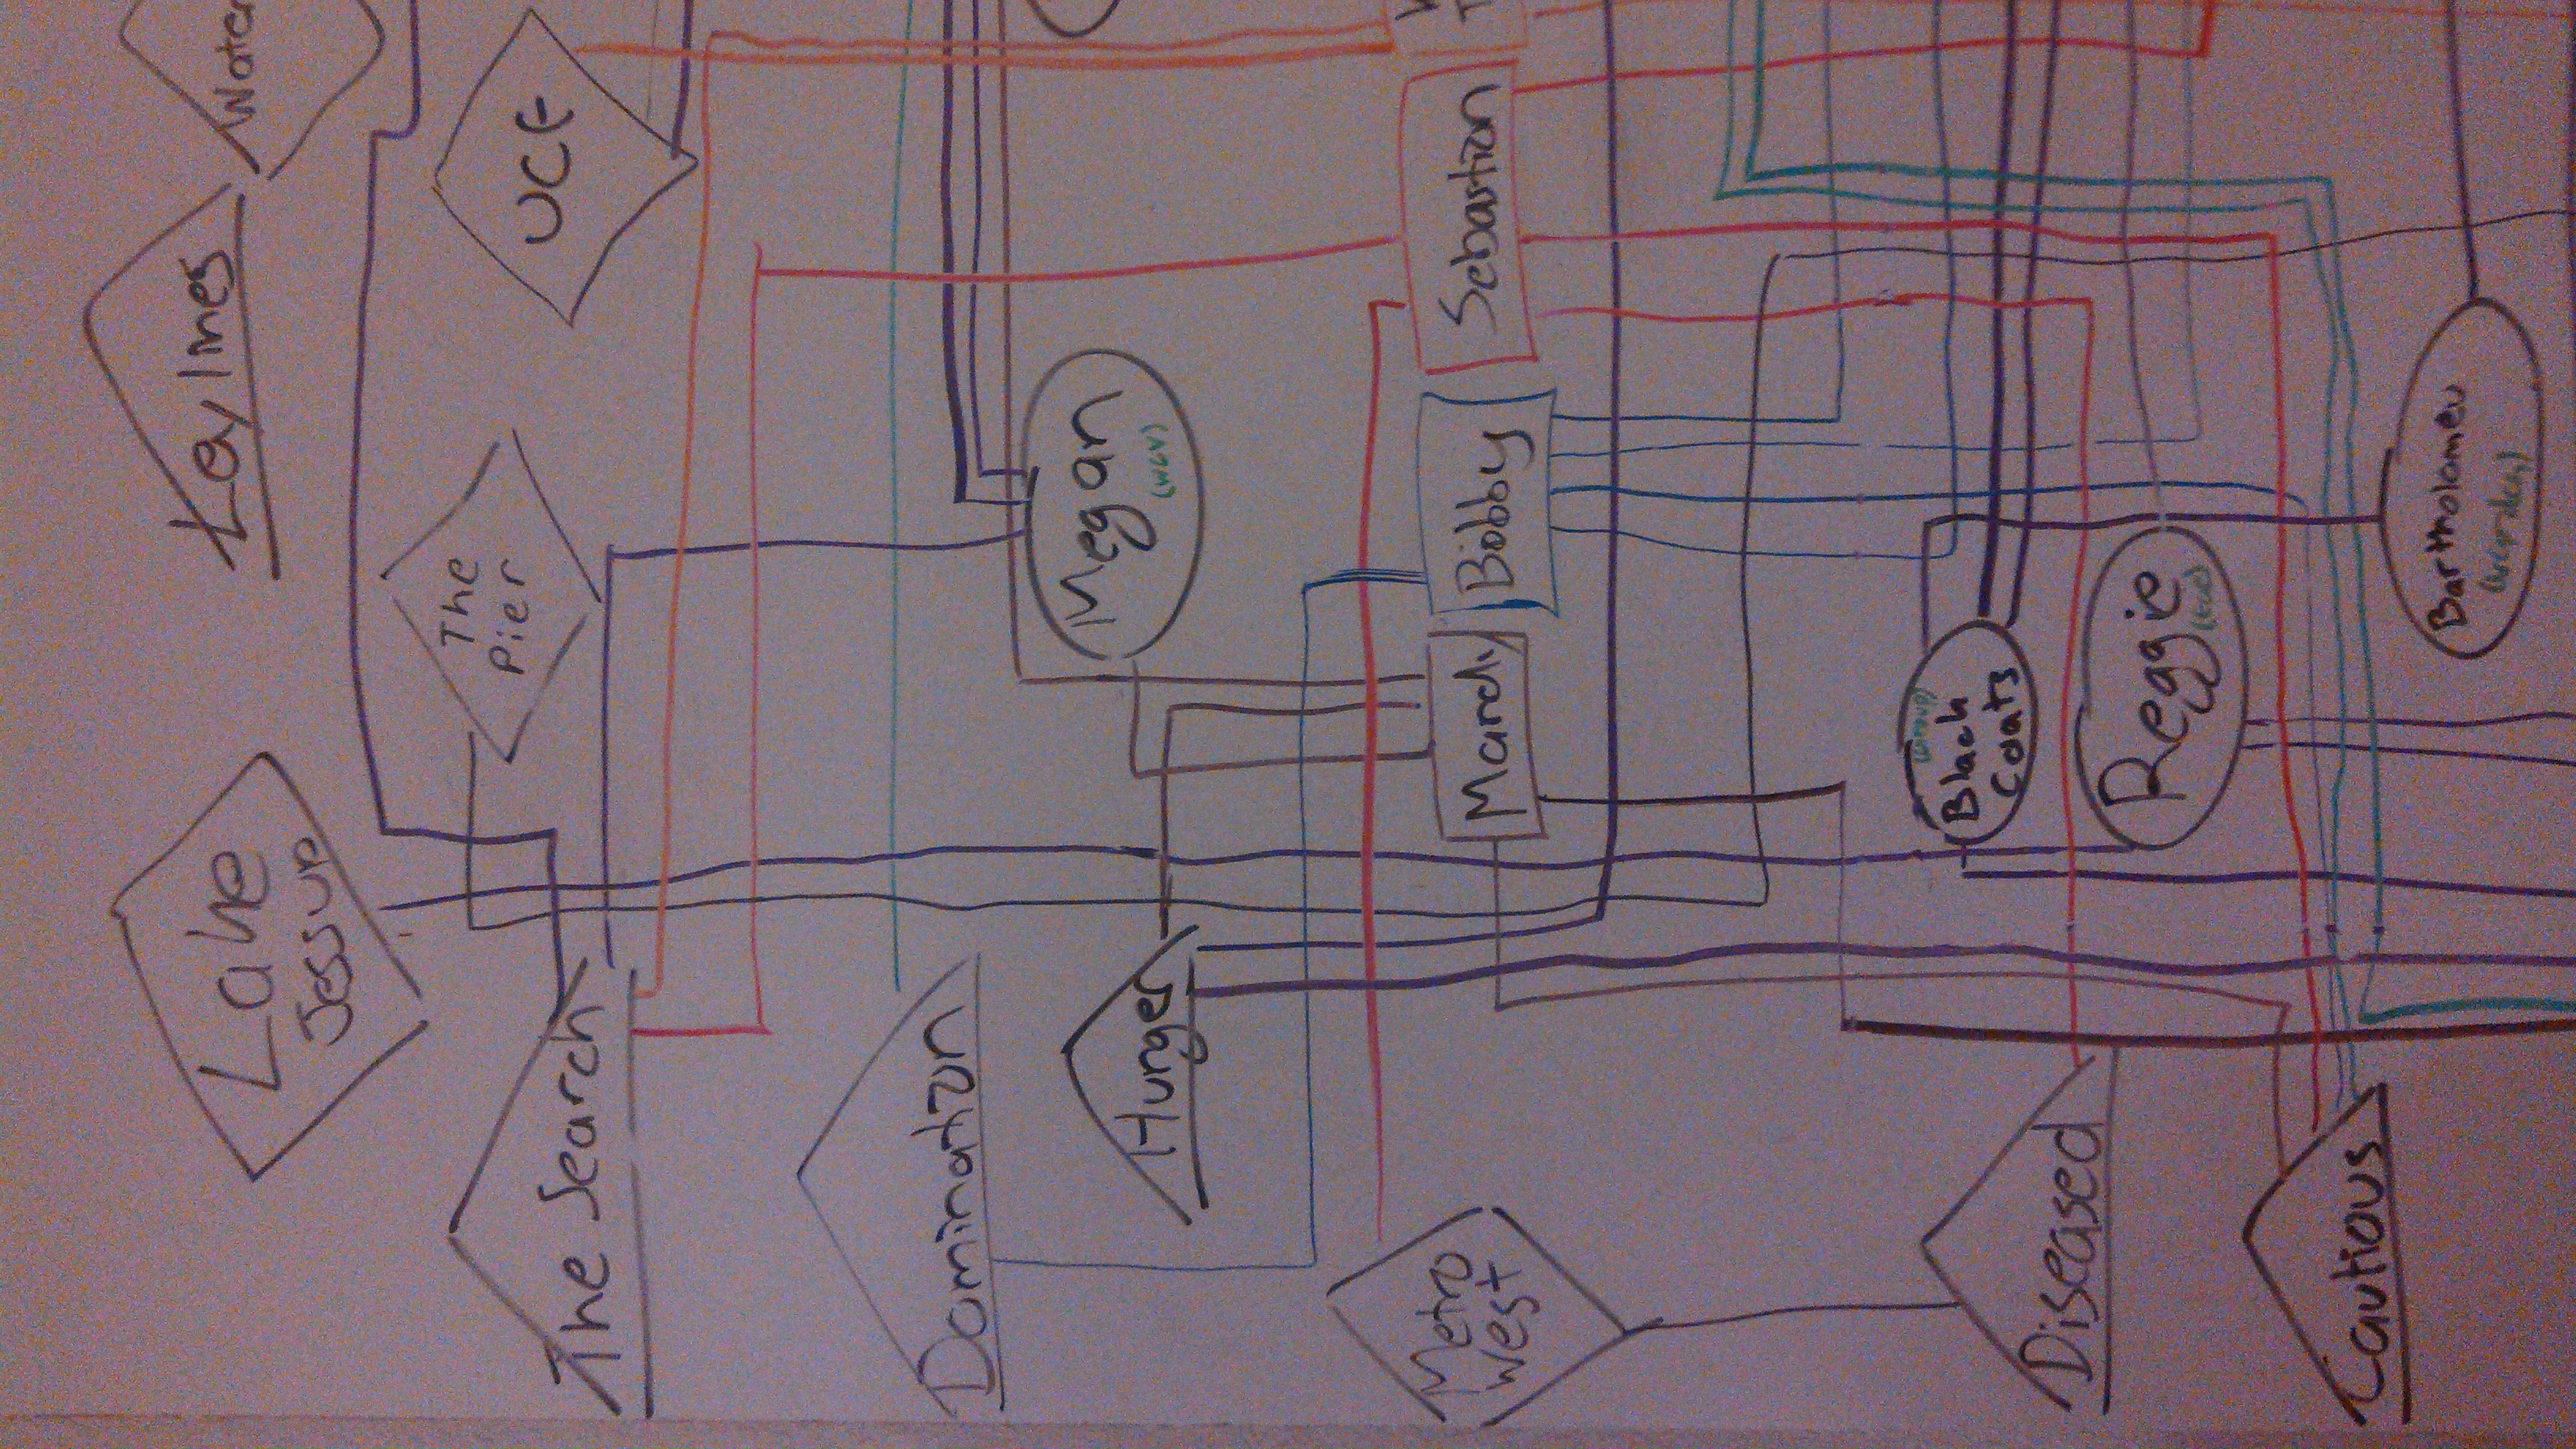 Lake
Jessup
Leylines
Water
The
Pier
UCF
The Search
Domination
Megan
(WCV)
Hunger
Metro
West
Mandy
Bobby
Sebastian
(Group)
Black
Coats
Diseased
Reggie
Cautious
Bartholomew